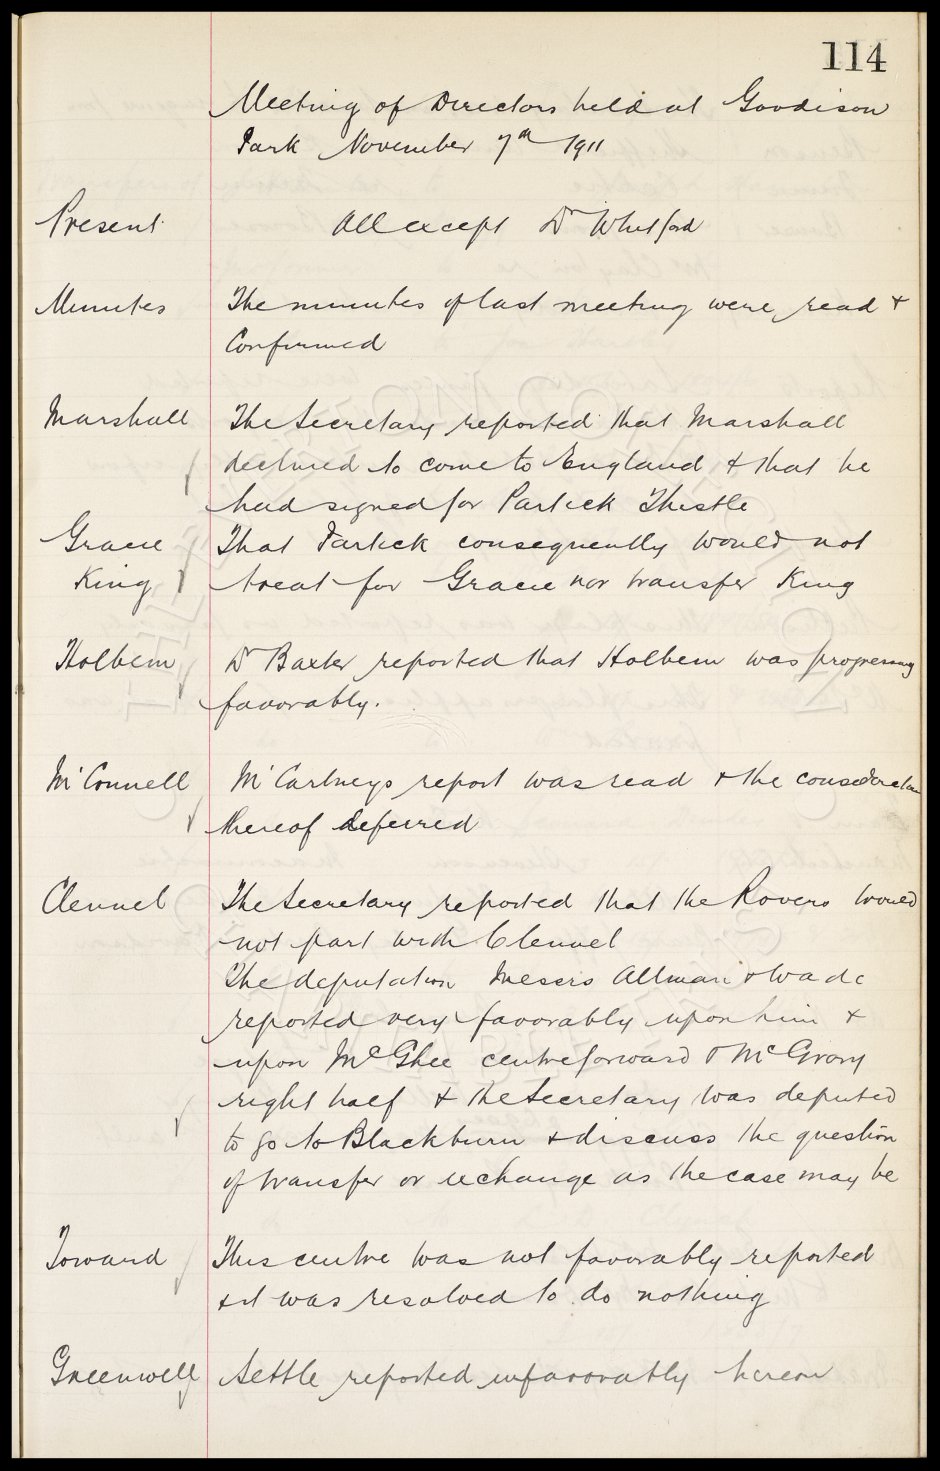 114
Meeting of Directors held at Goodison
Park November 7th 1911
Present All except Dr Whitford
Minutes The minutes of last meeting were read &
Confirmed
Marshall The Secretary reported that Marshall
declined to come to England & that he
had signed for Partick Thistle
Gracie That Partick consequently would not
King treat for Gracie nor transfer King
Holbem Dr Baxter reported that Holbem was progressing
favorably.
McConnell McCartneys report was read & the consideration
thereof deferred
Clennel The Secretary reported that the Rovers would
not part with Clennel
The deputation Messrs Allman & Wade
reported very favorably upon him &
upon McGhee centre forward & McGrory
right half & the Secretary was deputed
to go to Blackburn & discuss the question
of transfer or exchange as the case may be
Toward This centre was not favorably reported
& it was resolved to do nothing
Greenwell Settle reported unfavorably hereon